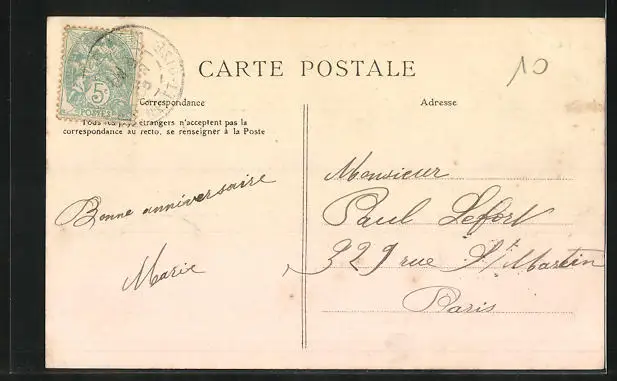 10
CARTE POSTALE
5c
POSTES
Correspondance
Tous les étrangers n'acceptent pas la
correspondance au recto, se renseigner à la Poste
Bonne anniversaire
Marie
Adresse
Monsieur
Paul Lefort
329 rue St Martin
Paris